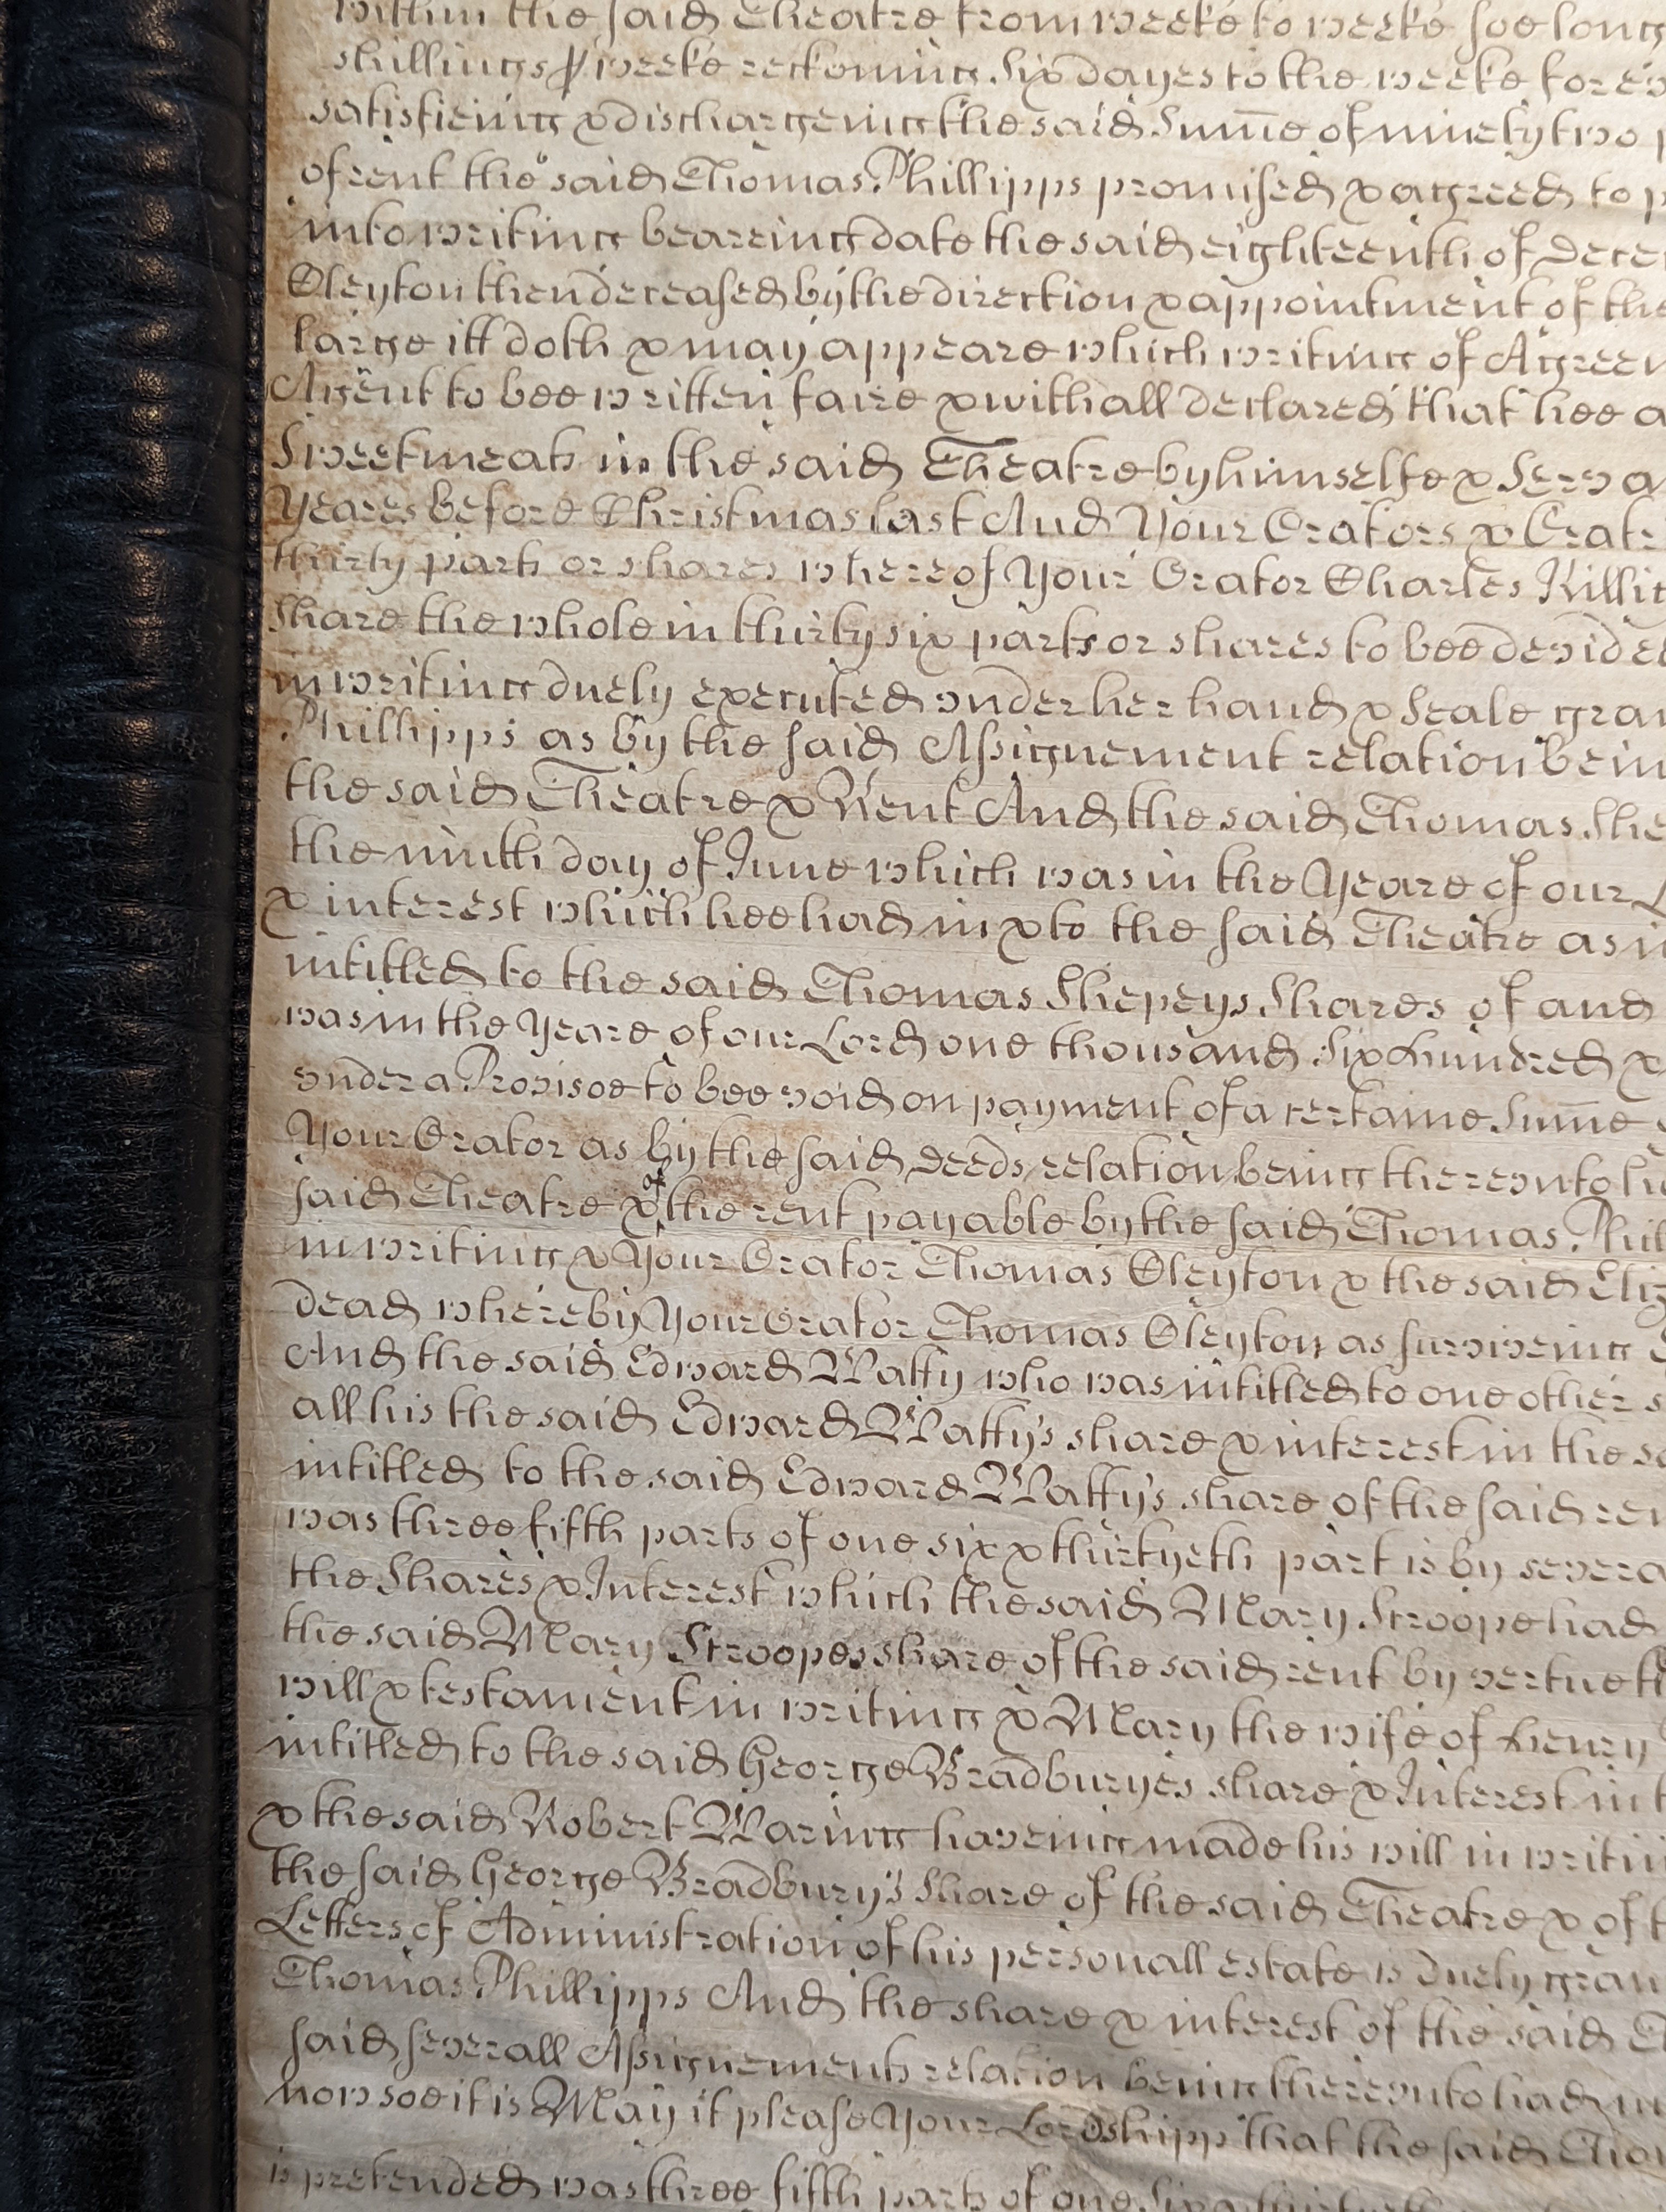 within the said Theatre from weeke to weeke soe long
shillings p weeke reckoning Six dayes to the weeke for ev
satisfieing & dischargeing the said Sum̄e of ninety two p
of rent the said Thomas Phillipps promised & agreed to p
into writing beareing date the said eighteenth of Dece
Cleyton then deceased by the direction & appointment of the
large itt doth & may appeare which writing of Agreem
Agent to bee written faire & withall declared that hee a
Sweetmeats in the said Theatre by himselfe & Serva
Yeares before Christmas last And Your Orators & Oratr
thirty parts or shares whereof Your Orator Charles Killig
share the whole in thirty six parts or shares to bee devided
in writing duely executed under her hand & Seale gran
Phillipps as by the said Assignement relation bein
the said Theatre & Rent And the said Thomas She
the ninth day of June which was in the Yeare of our L
& interest which hee had in & to the said Theatre as in
intitled to the said Thomas Shepeys Shares of and
was in the Yeare of our Lord one thousand Six hundred &
under a Provisoe to bee void on payment of a certaine Sum̄e
Your Orator as by the said Deeds relation being thereunto h
said Theatre & of the rent payable by the said Thomas Phil
in writing & Your Orator Thomas Cleyton & the said Eliz
dead whereby Your Orator Thomas Cleyton as surviveing
And the said Edward Watty who was intitled to one other s
all his the said Edward Watty's share & interest in the sa
intitled to the said Edward Watty's share of the said ren
was three fifth parts of one six & thirtyeth part is by severa
the Shares & Interest which the said Mary Scroope had
the said Mary Scroopes share of the said rent by vertue th
will & testament in writing & Mary the wife of Henry
intitled to the said George Bradburyes share & Interest in t
& the said Robert Waring haveing made his will in writi
the said George Bradbury's Share of the said Theatre & of t
Letters of Administration of his personall estate is duely gran
Thomas Phillipps And the share & interest of the said
said severall Assignements relation being thereunto had
now soe it is May it please Your Lordshipp that the said Tho
is pretended was three fifth parts of one Six & thirtyeth